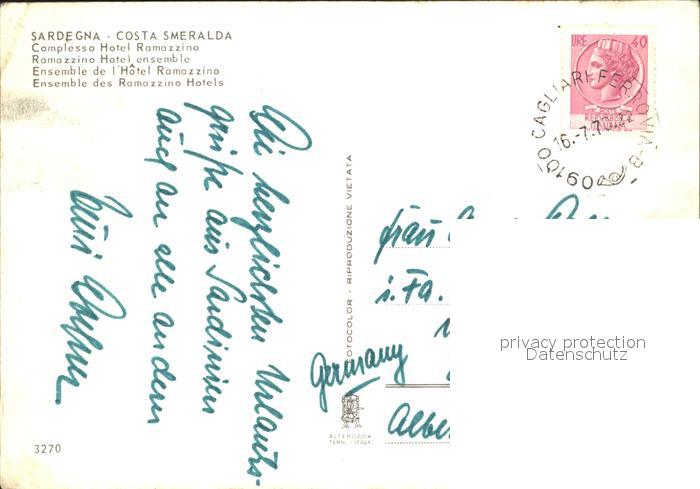 SARDEGNA - COSTA SMERALDA
Complesso Hotel Ramazzino
Ramazzino Hotel ensemble
Ensemble de l'Hôtel Ramazzino
Ensemble des Ramazzino Hotels
Die herzlichsten Urlaubs-
grüße aus Sardinien
auch an alle anderen
3270
FOTOCOLOR - RIPRODUZIONE VIETATA
ALTEROCCA
TERNI - ITALY
LIRE 40
POSTE
REPUBBLICA
ITALIANA
09100 CAGLIARI FERROVIA-B
16.-7.7
Frau
i. Fa.
Germany
Albe
privacy protection
Datenschutz